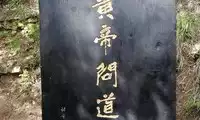 黄帝問道